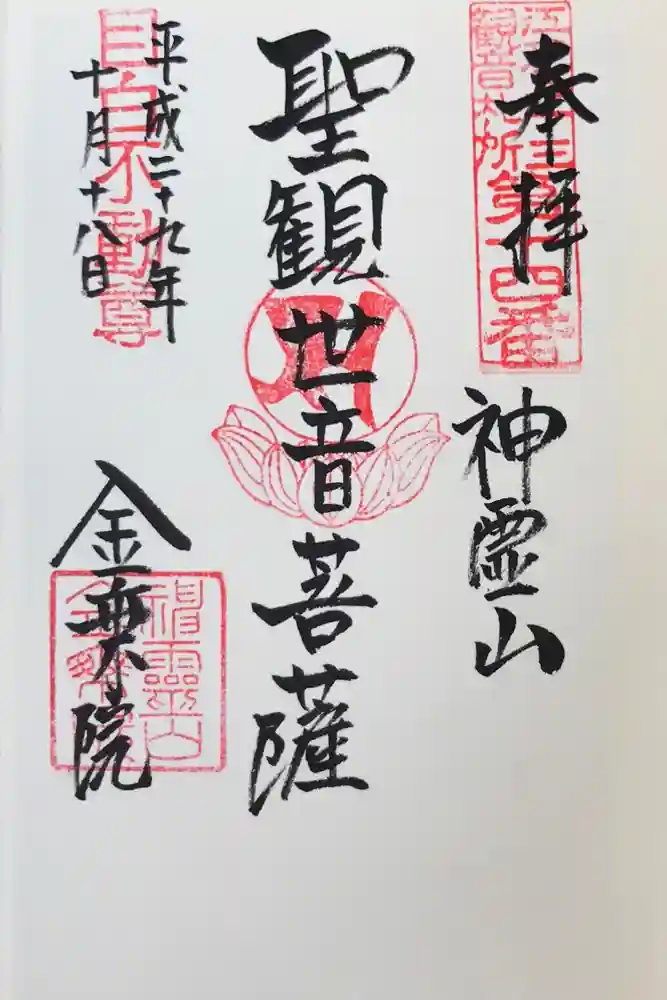 奉拝
江戸三十三
観音札所第十四番
神霊山
聖観世音菩薩
平成二十九年
十月十八日
目白不動尊
金乗院
神霊山
金乗院